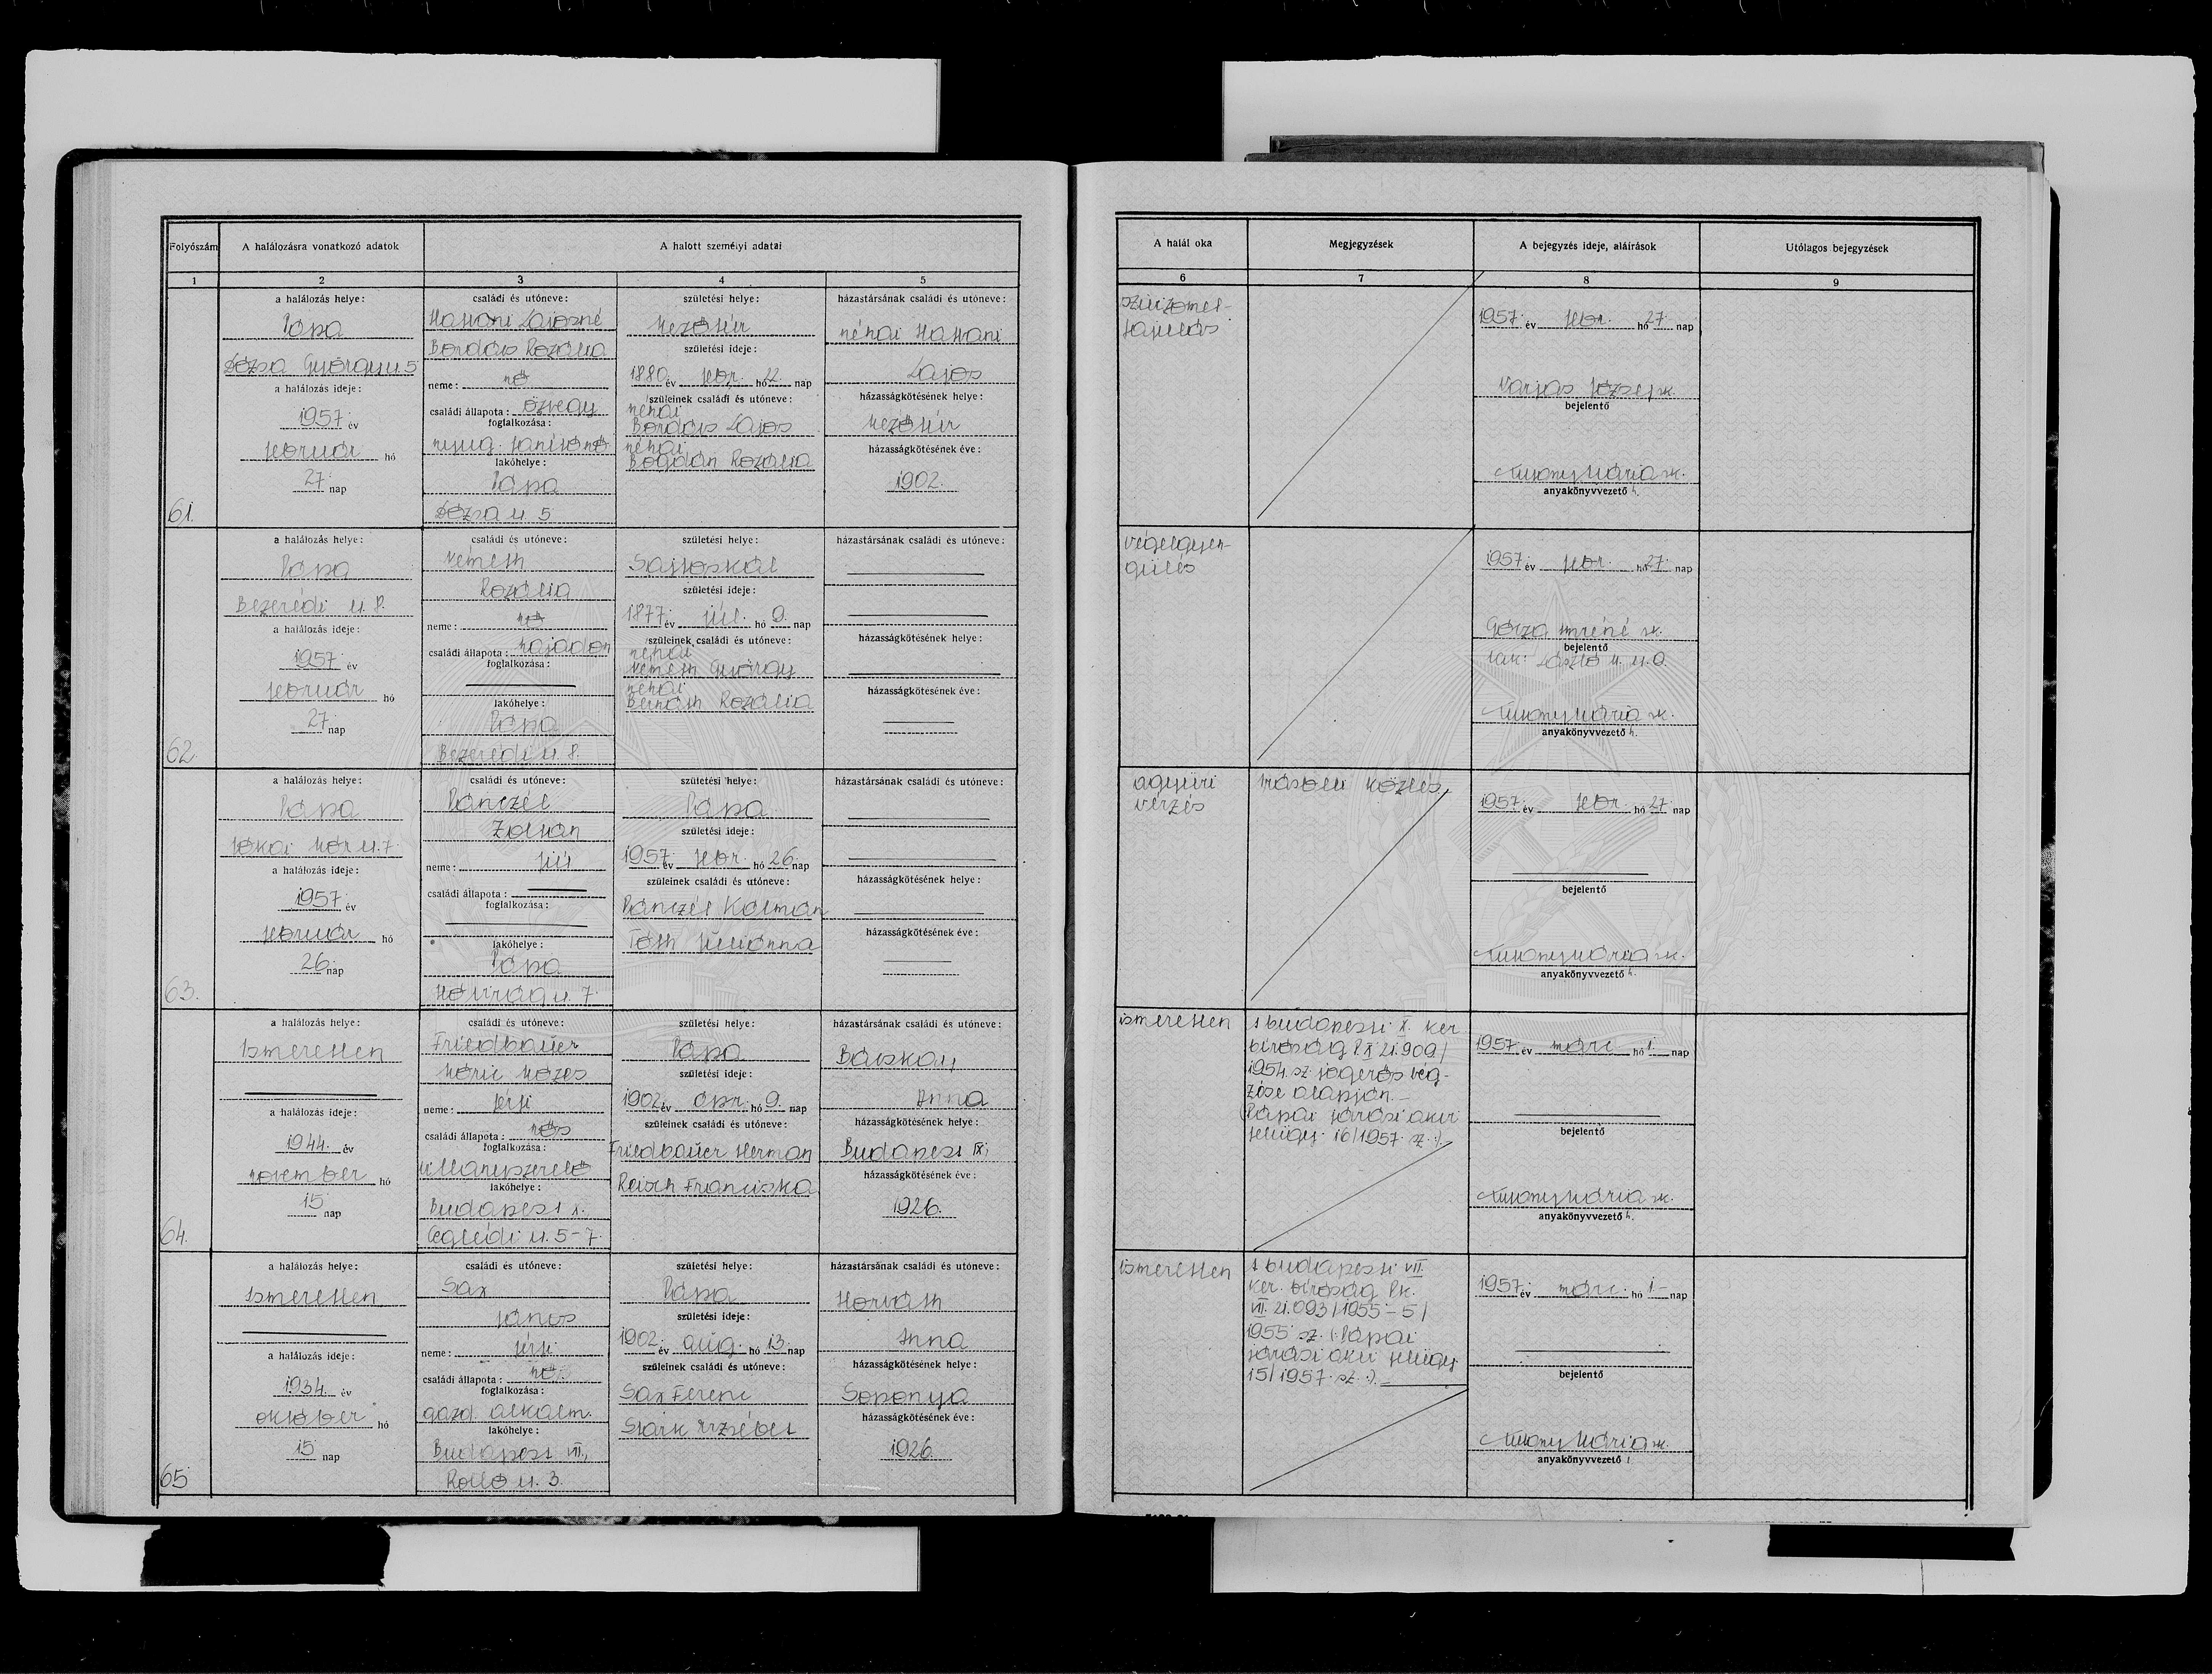 Folyószám
A halálozásra vonatkozó adatok
A halott személyi adatai
1
2
3
4
5
a halálozás helye:
Pápa
Dózsa György u 5
a halálozás ideje:
1957. év
február hó
27. nap
61.
családi és utóneve:
Hattani Lajosné
Bordás Rozália
neme: nő
családi állapota: özvegy
foglalkozása:
nyug. tanítónő
lakóhelye:
Pápa
Dózsa u. 5
születési helye:
Mezőtúr
születési ideje:
1880. év febr. hó 22. nap
szüleinek családi és utóneve:
néhai
Bordás Lajos
néhai
Bogdán Rozália
házastársának családi és utóneve:
néhai Hattani
Lajos
házasságkötésének helye:
Mezőtúr
házasságkötésének éve:
1902.
a halálozás helye:
Pápa
Bezerédi u. 8.
a halálozás ideje:
1957. év
február hó
27. nap
62.
családi és utóneve:
Németh
Rozália
neme: nő
családi állapota: hajadon
foglalkozása:
lakóhelye:
Pápa
Bezerédi u. 8.
születési helye:
Sajtoskál
születési ideje:
1877. év júl. hó 9. nap
szüleinek családi és utóneve:
néhai
Németh György
néhai
Bernáth Rozália
házastársának családi és utóneve:
házasságkötésének helye:
házasságkötésének éve:
a halálozás helye:
Pápa
Jókai Mór u. 7.
a halálozás ideje:
1957. év
február hó
26. nap
63.
családi és utóneve:
Pánczél
Zoltán
neme: fiú
családi állapota:
foglalkozása:
lakóhelye:
Pápa
Hóvirág u. 7.
születési helye:
Pápa
születési ideje:
1957. év febr. hó 26. nap
szüleinek családi és utóneve:
Pánczél Kálmán
Tóth Juliánna
házastársának családi és utóneve:
házasságkötésének helye:
házasságkötésének éve:
a halálozás helye:
Ismeretlen
a halálozás ideje:
1944. év
november hó
15 nap
64.
családi és utóneve:
Friedbauer
Móric Mózes
neme: férfi
családi állapota: nős
foglalkozása:
villanyszerelő
lakóhelye:
Budapest X.
Ceglédi u. 5-7.
születési helye:
Pápa
születési ideje:
1902. év ápr. hó 9. nap
szüleinek családi és utóneve:
Friedbauer Herman
Reisch Franciska
házastársának családi és utóneve:
Bácskay
Anna
házasságkötésének helye:
Budapest IX,
házasságkötésének éve:
1926.
a halálozás helye:
Ismeretlen
a halálozás ideje:
1934. év
október hó
15 nap
65
családi és utóneve:
Sax
János
neme: férfi
családi állapota: nős
foglalkozása:
gazd. alkalm.
lakóhelye:
Budapest VII.,
Rottö u. 3.
születési helye:
Pápa
születési ideje:
1902. év aug. hó 13. nap
szüleinek családi és utóneve:
Sax Ferenc
Stark Erzsébet
házastársának családi és utóneve:
Horváth
Anna
házasságkötésének helye:
Soponya
házasságkötésének éve:
1926.
A halál oka
Megjegyzések
A bejegyzés ideje, aláírások
Utólagos bejegyzések
6
7
8
9
szívizomel-
fajulás
1957. év febr. hó 27. nap
Varjas József sk.
bejelentő
Mária sk.
anyakönyvvezető h.
végelgyen-
gülés
1957. év febr. hó 27. nap
Imréné sk.
bejelentő
lak: László u. 9.
Mária sk.
anyakönyvvezető h.
agyűri
vérzés
Írásbeli közlés.
1957. év febr. hó 27. nap
bejelentő
Mária sk.
anyakönyvvezető h.
ismeretlen
A budapesti X. ker
bíróság P.X 21.909/
1954. sz. jogerős vég-
zése alapján.-
(Pápai járási akvi
felügy. 16/1957. sz.:).
1957. év márc hó 1. nap
bejelentő
Mária sk.
anyakönyvvezető h.
ismeretlen
A budapesti VII.
ker. bíróság Pk.
VII. 21.093/1955-5/
1955 sz. (:Pápai
járási akvi felügy.
15/1957. sz.:).
1957. év márc. hó 1- nap
bejelentő
Mária sk.
anyakönyvvezető